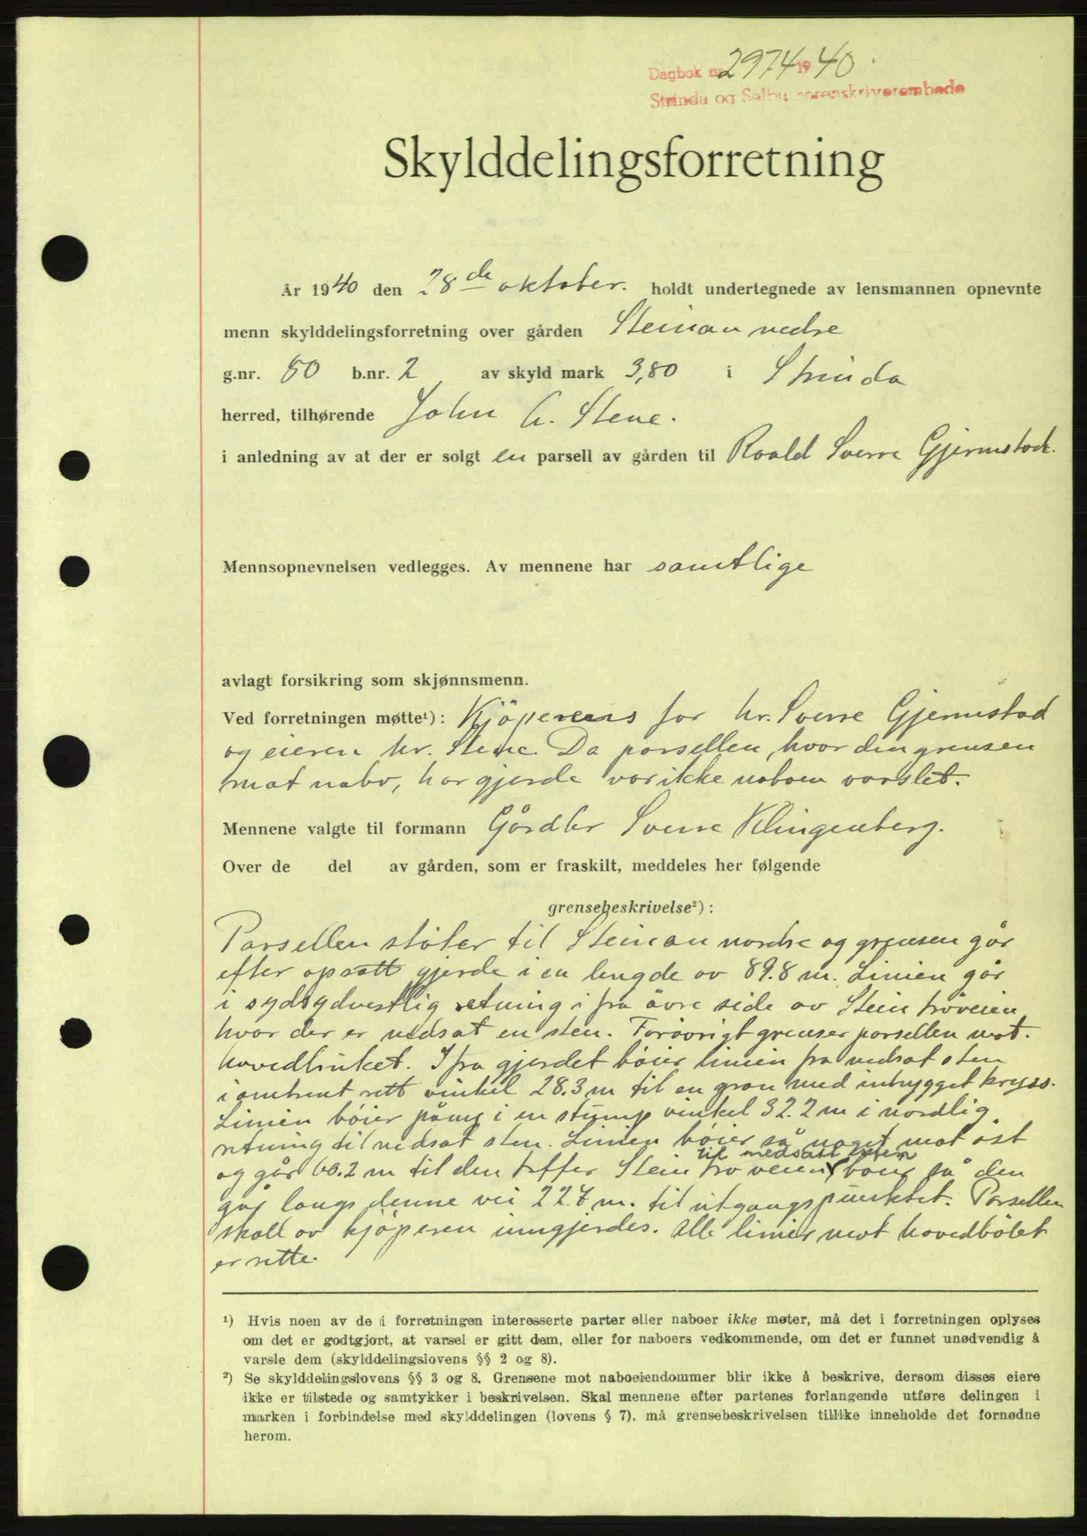 Dagbok nr. 2974 1940.
Strinda og Selbu sorenskriverembede
Skylddelingsforretning
År 1940 den 28de oktober. holdt undertegnede av lensmannen opnevnte
menn skylddelingsforretning over gården Steinan nedre
g.nr. 60 b.nr. 2 av skyld mark 3,80 i Strinda
herred, tilhørende John A. Stene.
i anledning av at der er solgt en parsell av gården til Roald Sverre Gjermstad.
Mennsopnevnelsen vedlegges. Av mennene har samtlige
avlagt forsikring som skjønnsmenn.
Ved forretningen møtte¹): Kjöperens far hr. Sverre Gjermstad
og eieren hr. Stene. Da parsellen, hvor den grenser
mot nabo, har gjerde var ikke naboen varslet.
Mennene valgte til formann Gårdbr Sverre Klingenberg.
Over de del av gården, som er fraskilt, meddeles her følgende
grensebeskrivelse²):
Parsellen støter til Steinan nordre og grensen går
efter opsatt gjerde i en lengde av 89.8 m. Linien går
i sydsydvestlig retning ifra övre side av Steintröveien
hvor der er nedsat en sten. Forövrigt grenser parsellen mot
hovedbruket. Ifra gjerdet böier linien fra nedsat sten
i omtrent rett vinkel 28.3 m til en gran med inhygget kryss.
Linien böier påny i en stump vinkel 32.2 m i nordlig
retning til nedsat sten. Linien böier så noget mot öst
til nedsatt sten
og går 60.2 m til den treffer Steintröveien böier så den
går langs denne vei 22.7 m. til utgangspunktet. Parsellen
skall av kjöperen inngjerdes. Alle linier mot hovedbölet
er rette.
¹) Hvis noen av de i forretningen interesserte parter eller naboer ikke møter, må det i forretningen oplyses
om det er godtgjort, at varsel er gitt dem, eller for naboers vedkommende, om det er funnet unødvendig å
varsle dem (skylddelingslovens §§ 2 og 8).
²) Se skylddelingslovens §§ 3 og 8. Grensene mot naboeiendommer blir ikke å beskrive, dersom disses eiere
ikke er tilstede og samtykker i beskrivelsen. Skal mennene efter partenes forlangende utføre delingen i
marken i forbindelse med skylddelingen (lovens § 7), må grensebeskrivelsen tillike inneholde det fornødne
herom.